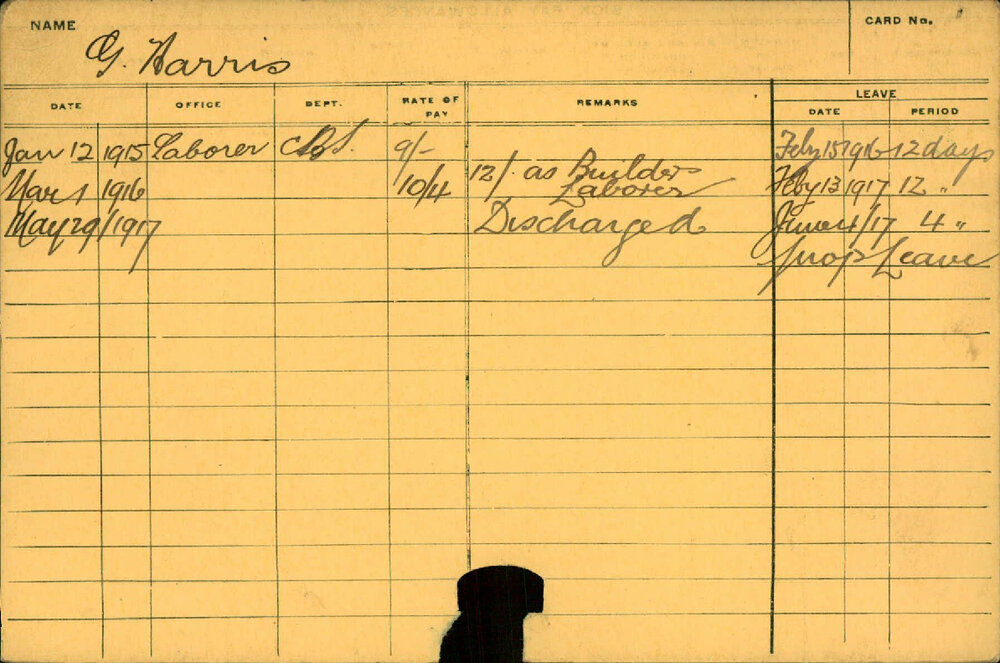 NAME
G. Harris
CARD No.
DATE OFFICE DEPT. RATE OF PAY REMARKS LEAVE
DATE PERIOD
Jan 12 1915 Laborer 9/- Feby 15 1916 12 days
Mar 1 1916 10/4 12/- as Builders Laborer Feby 13 1917 12 "
May 29/1917 Discharged June 4/17 4 "
prop Leave